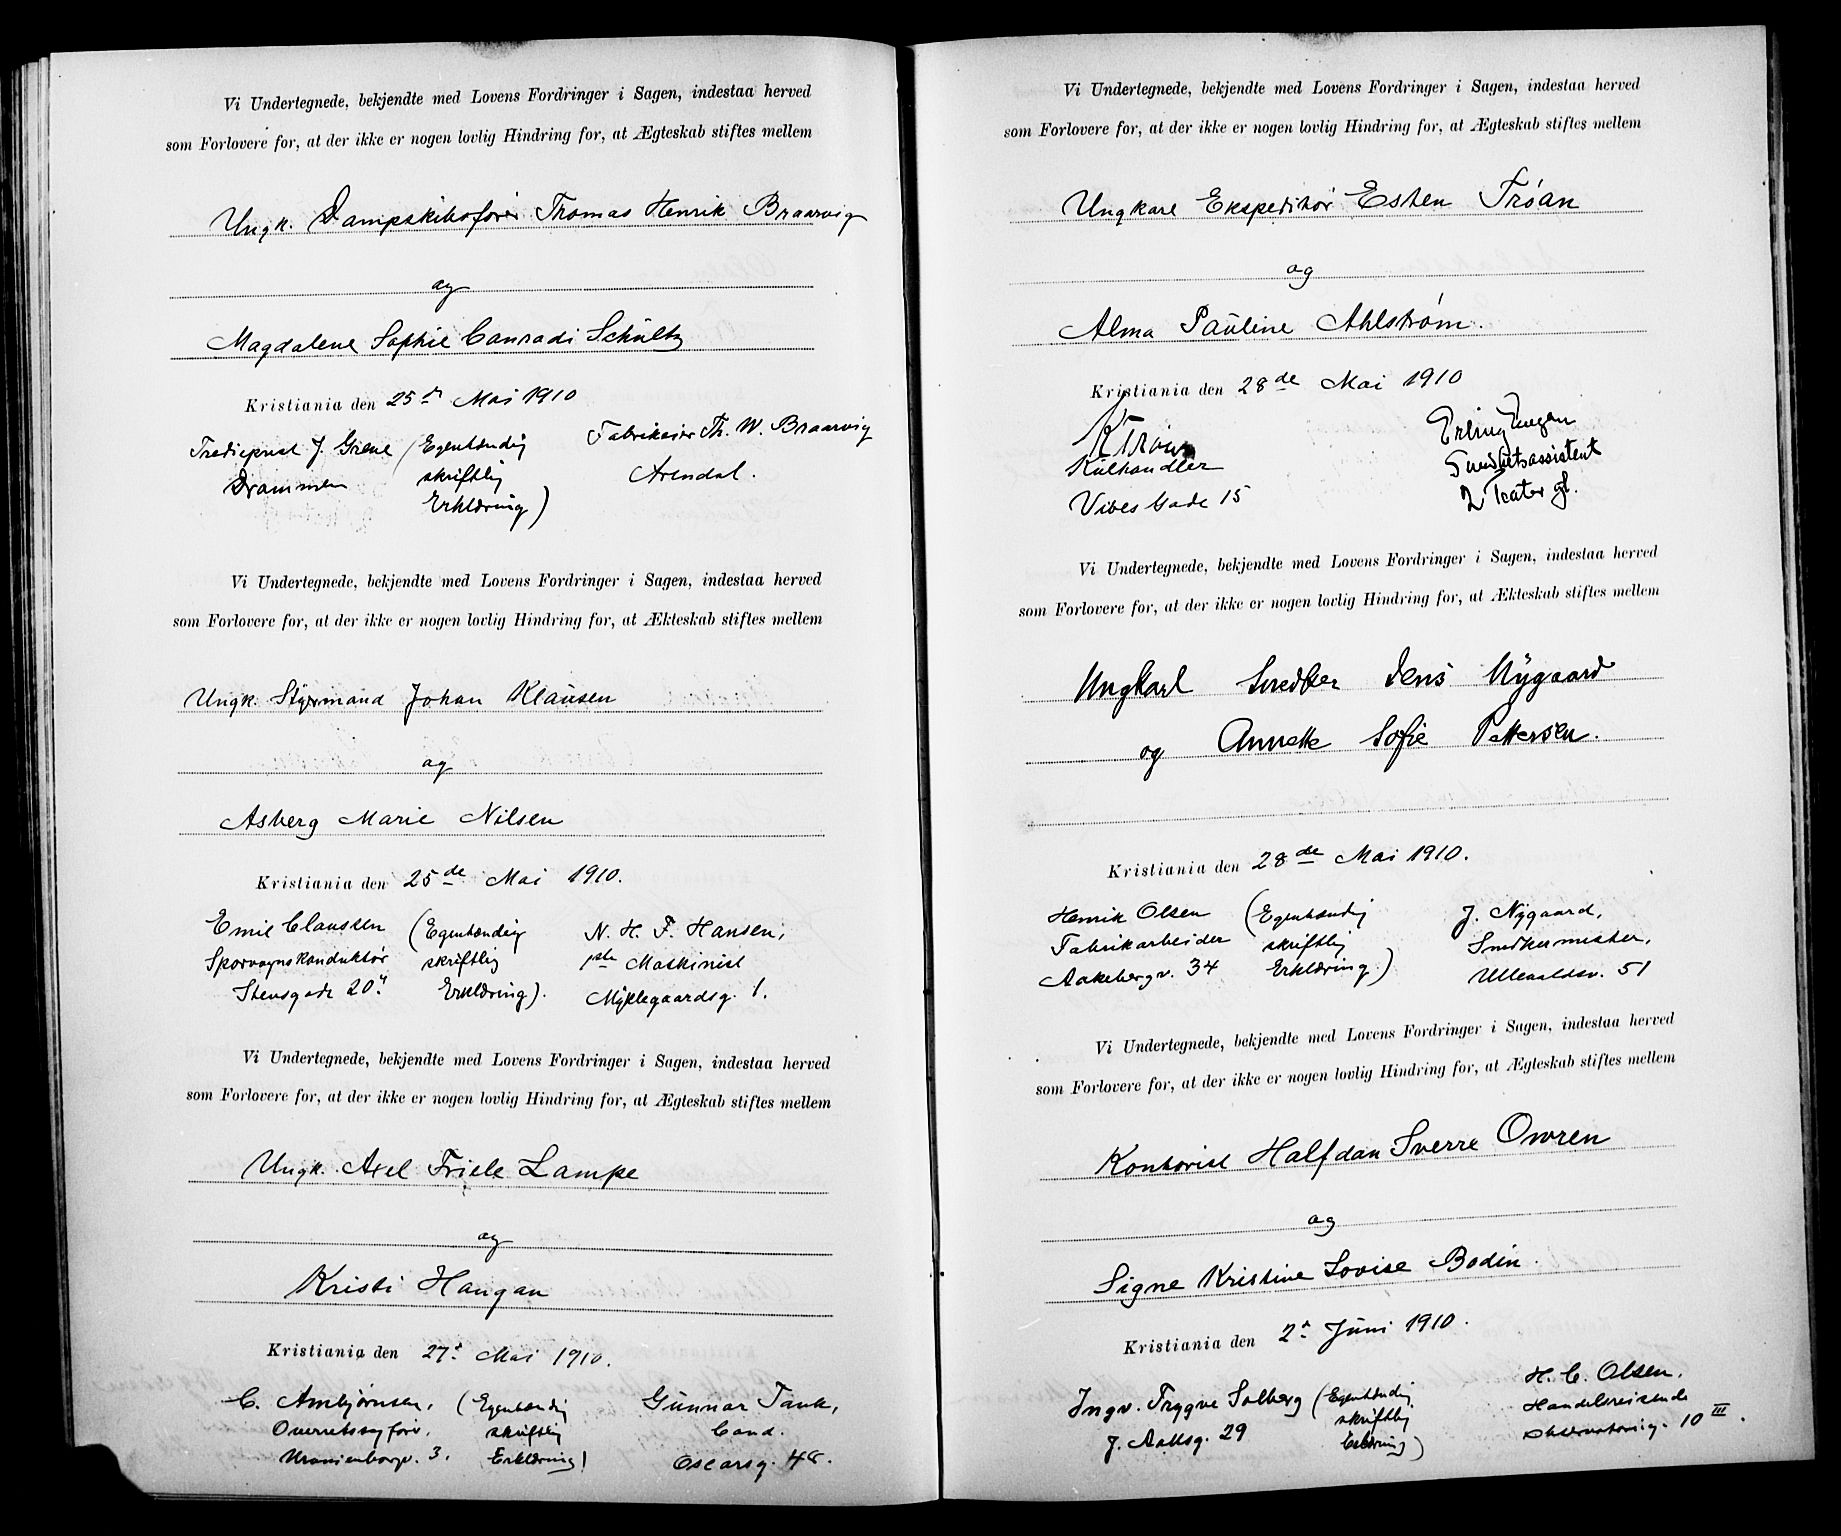 Vi Undertegnede, bekjendte med Lovens Fordringer i Sagen, indestaa herved
som Forlovere for, at der ikke er nogen lovlig Hindring for, at Ægteskab stiftes mellem
Ungk. Dampskibsfører Thomas Henrik Braarvig
og
Magdalene Sophie Conradi Schultz
Kristiania den 25de Mai 1910
J. Grene (Egenhændig
Drammen skriftlig
Erklæring)
Fabrikeier Th. W. Braarvig
Arendal.
Vi Undertegnede, bekjendte med Lovens Fordringer i Sagen, indestaa herved
som Forlovere for, at der ikke er nogen lovlig Hindring for, at Ækteskab stiftes mellem
Ungk. Styrmand Johan Klausen
og
Asberg Marie Nilsen
Kristiania den 25de Mai 1910.
Emil Claussen (Egenhændig
Sporvognskonduktør skriftlig
Stensgade 20II Erklæring).
N. H. F. Hansen,
1ste Maskinist
Myklegaardsg. 1.
Vi Undertegnede, bekjendte med Lovens Fordringer i Sagen, indestaa herved
som Forlovere for, at der ikke er nogen lovlig Hindring for, at Ægteskab stiftes mellem
Ungk. Axel Friele Lampe
og
Kristi Haugan
Kristiania den 27de Mai 1910.
C. Ambjørnsen, (Egenhændig
Overretssagfører. skriftlig
Uranienborgv. 3. Erklæring)
Gunnar Tank,
Cand.
Oscarsg. 48.
Vi Undertegnede, bekjendte med Lovens Fordringer i Sagen, indestaa herved
som Forlovere for, at der ikke er nogen lovlig Hindring for, at Ægteskab stiftes mellem
Ungkarl Ekspeditør Esten Trøan
og
Alma Pauline Ahlstrøm.
Kristiania den 28de Mai 1910
K Trøan
Kulhandler
Vibes Gade 15
Erling
Sundhetsassistent
2 Teater gt.
Vi Undertegnede, bekjendte med Lovens Fordringer i Sagen, indestaa herved
som Forlovere for, at der ikke er nogen lovlig Hindring for, at Ækteskab stiftes mellem
Ungkarl Snedker Jens Nygaard
og Annette Sofie Pettersen.
Kristiania den 28de Mai 1910.
Henrik Olsen (Egenhændig
Fabrikarbeider skriftlig
Aakebergv. 34 Erklæring)
J. Nygaard,
Snedkermester,
Ullevaldsv. 51
Vi Undertegnede, bekjendte med Lovens Fordringer i Sagen, indestaa herved
som Forlovere for, at der ikke er nogen lovlig Hindring for, at Ægteskab stiftes mellem
Kontorist Halfdan Sverre Owren
og
Signe Kristine Lovise Bodin.
Kristiania den 2n Juni 1910.
Ingv. Trygve Solberg (Egenhændig
skriftlig
J. Aallsg. 29 Erklæring)
H. C. Olsen,
Handelsreisende
Observatoriig. 10 III.